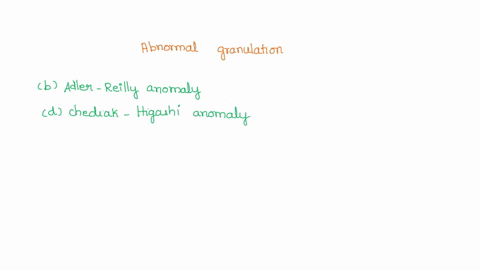 Abnormal granulation
(b) Adler-Reilly anomaly
(d) Chediak - Higashi anomaly